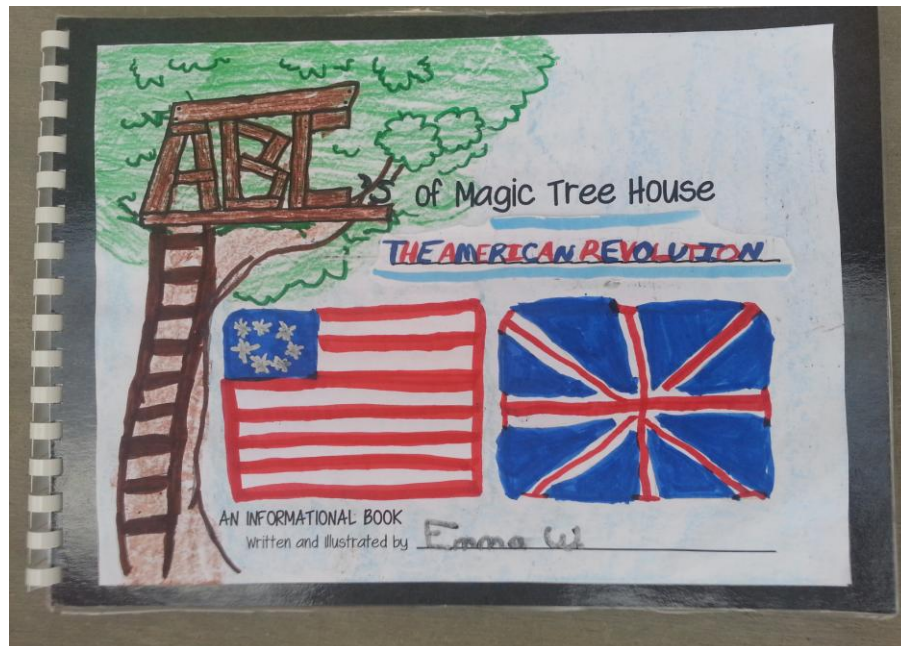 ABC's of Magic Tree House
THE AMERICAN REVOLUTION
AN INFORMATIONAL BOOK
Written and Illustrated by Emma W